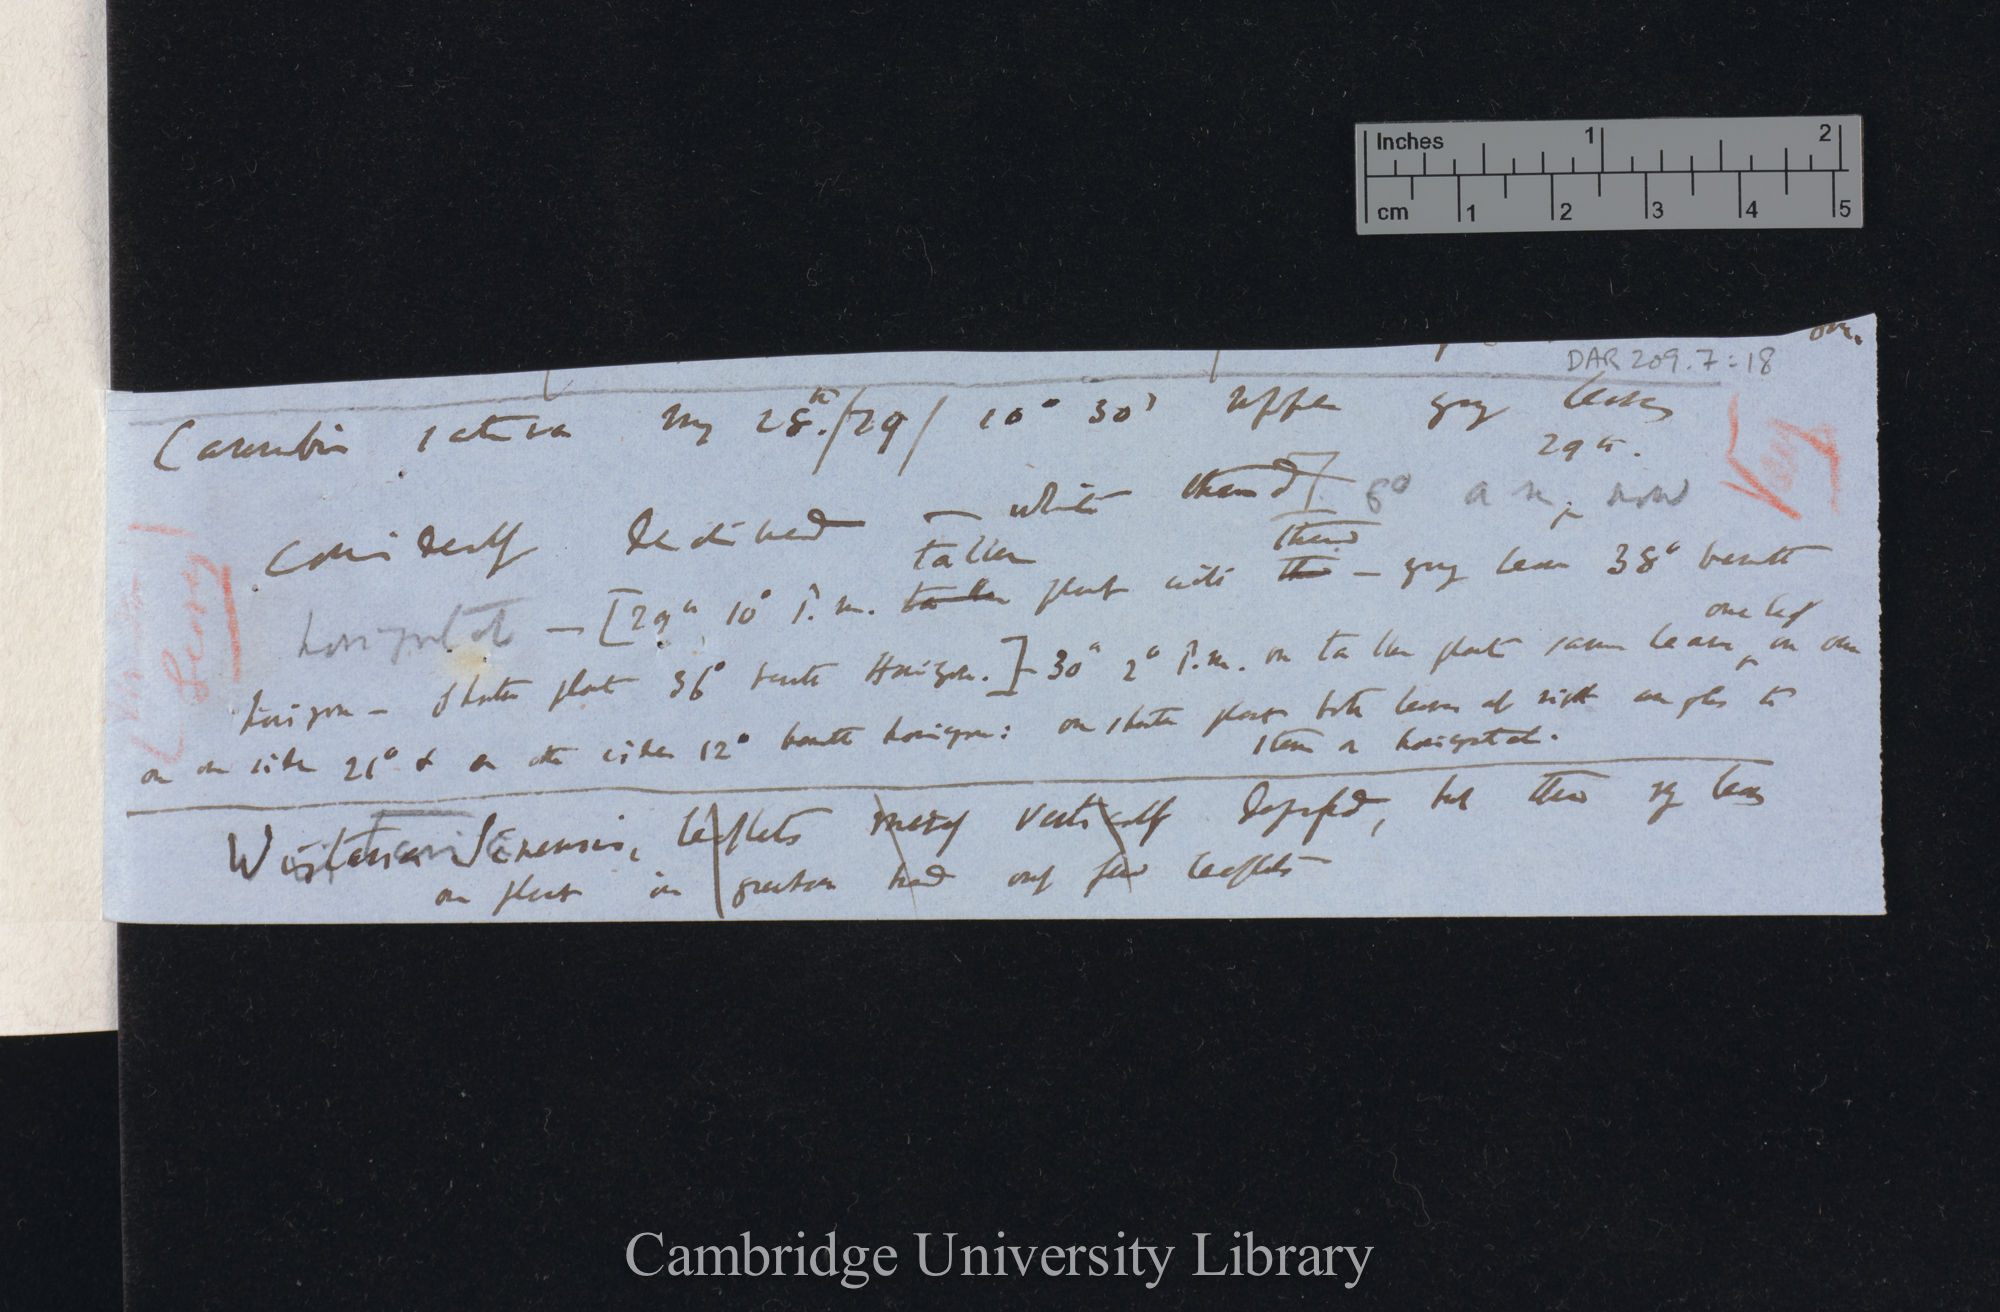 Inches 1 2
cm 1 2 3 4 5
DAR 209.7:18
Cannabis sativa May 28th./29/ 10° 30' upper young leaves
29th.
considerably declined — white thread] 8° a m, now
taller thread
horizontal — [29th 10° P.m. taller plant with the — young leaves 38° beneath
one leaf
horizon — shorter plant 36° beneath Horizon.] — 30th 2° P.m. on taller plant same leaves, on one
on one side 21° & on other side 12° beneath horizon: on shorter plant both leaves at right angles to
stem or horizontal.
Wistaria Sinensis, leaflets vertically depressed, but these young leaves
on plant in greenhouse had only few leaflets
Cambridge University Library